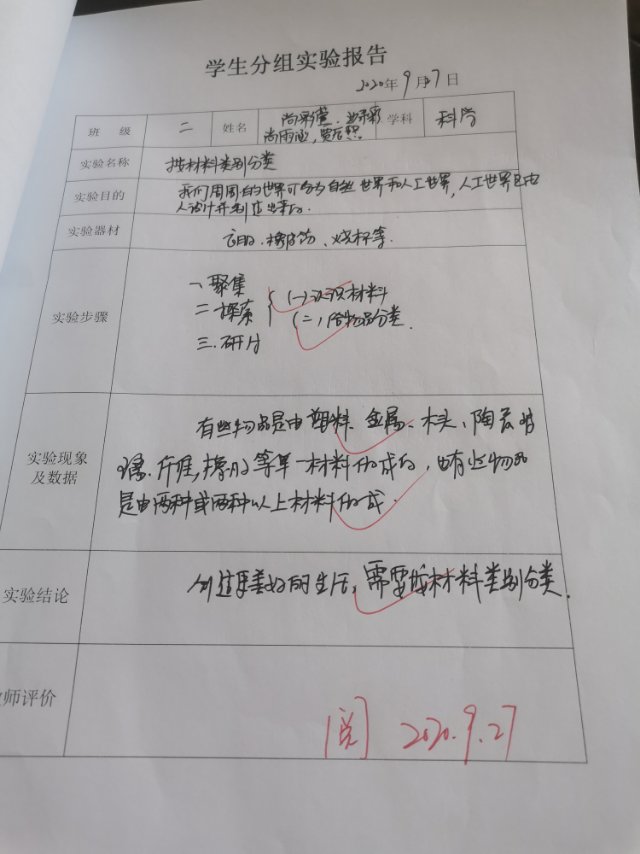 学生分组实验报告
2020年9月7日
班 级 二 姓名 学科 科学
尚雨涵
实验名称 按材料类别分类
实验目的 我们周围的世界可分为自然世界和人工世界,人工世界是由
人设计并制造出来的.
实验器材 烧杯等.
实验步骤
一聚集
二探索 (一)认识材料
(二)给物品分类.
三.研讨
实验现象
及数据
有些物品是由塑料、金属、木头、陶瓷、玻
璃、纤维,橡胶等单一材料做成的,也有些物品
是由两种或两种以上材料做成.
实验结论 创造更美好的生活,需要按材料类别分类.
师评价
阅 2020.9.27